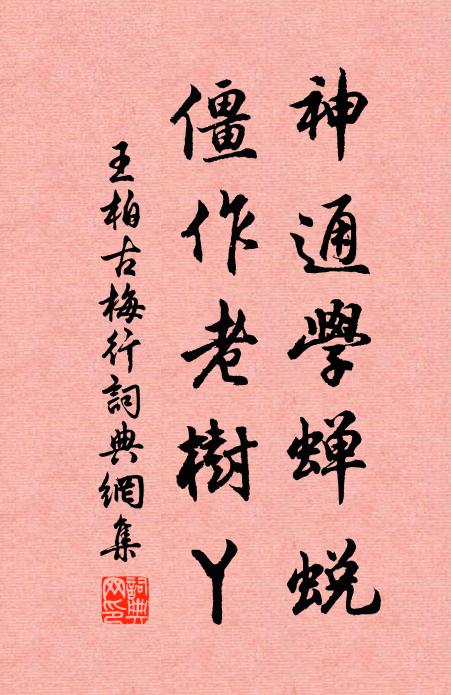 神通學蝉蜕
僵作老樹丫
王柏古梅行詞典網集
詞典网印